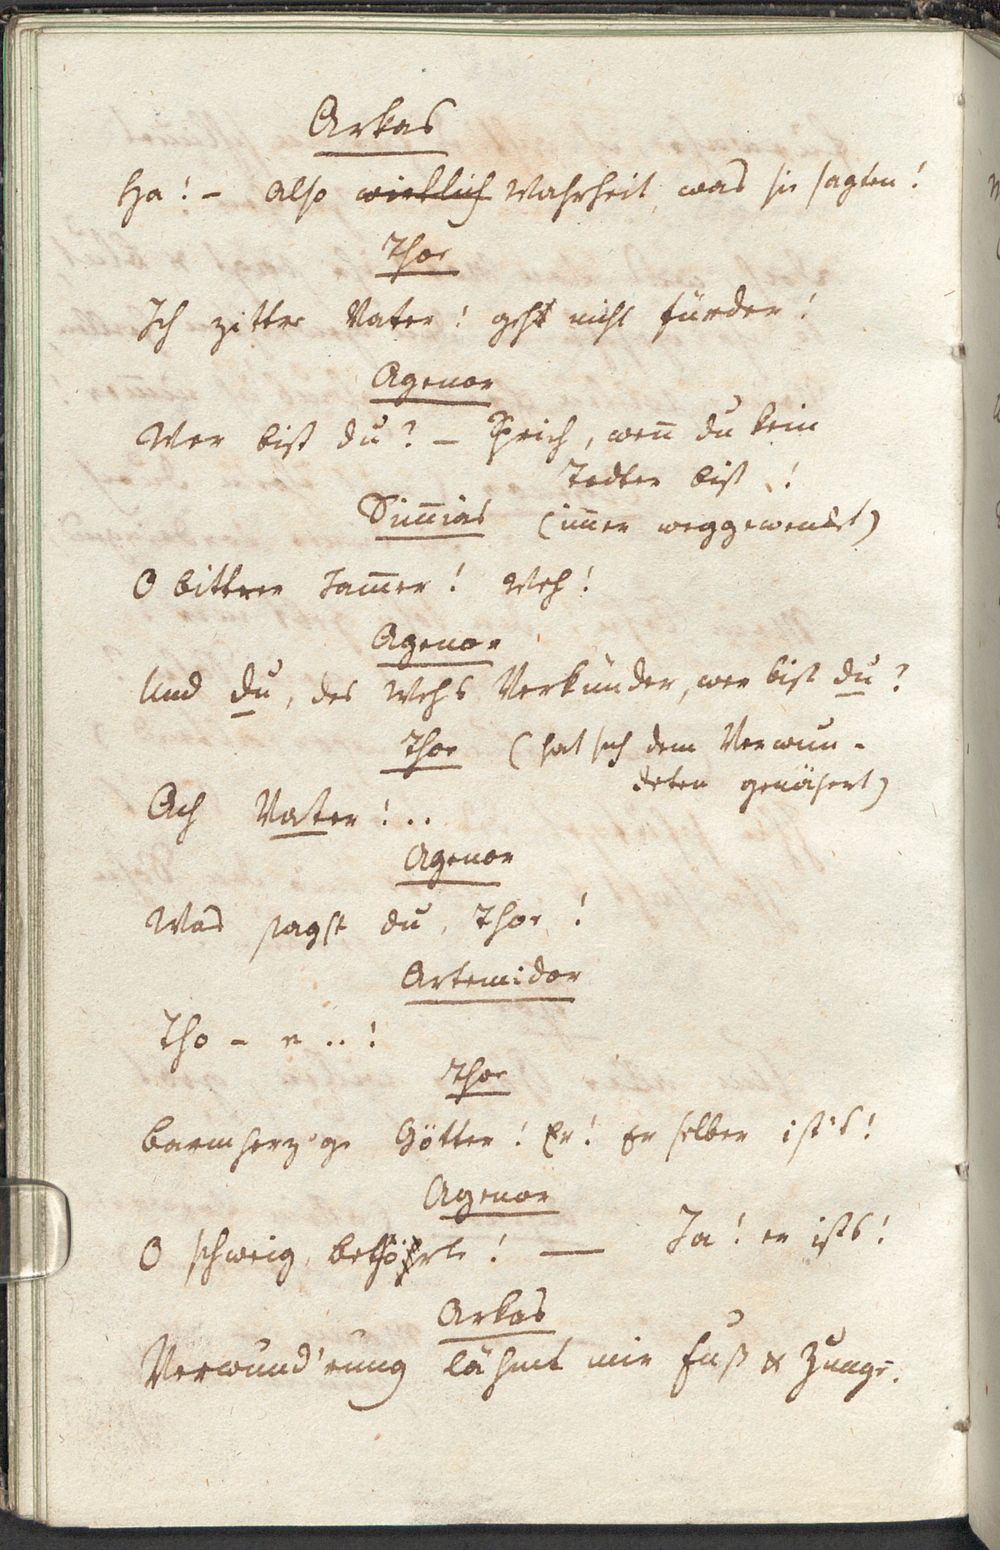 Arkas
Ha! – Also wirklich Wahrheit, was sie sagten!
Thor
Ich zittre Vater! geht nicht fürder!
Agenor
Wer bist du? – Sprich, wen̄ du kein
Todter bist!
Sim̄ias (im̄er weggewendet)
O bittrer Jam̄er! Weh!
Agenor
Und du, des Wehs Verkünder, wer bist du?
Thor (hat sich dem Verwun-
deten genähert)
Ach Vater!..
Agenor
Was sagst du, Thor!
Artemidor
Tho – r..!
Thor
Barmherz'ge Götter! Er! Er selber ist's!
Agenor
O schweig, bethörte! — Ja! er ists!
Arkas
Verwund'rung lähmt mir Fuß & Zunge.